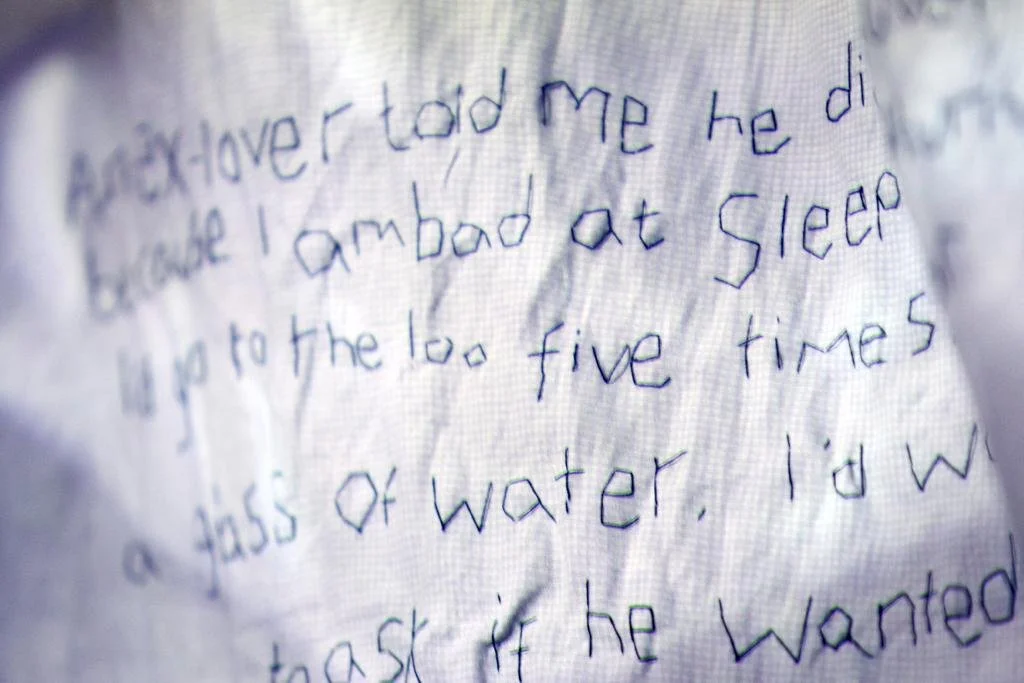 An ex-lover told me he di
because I am bad at Sleep
I'd go to the loo five times
a glass of water. I'd w
to ask if he wanted